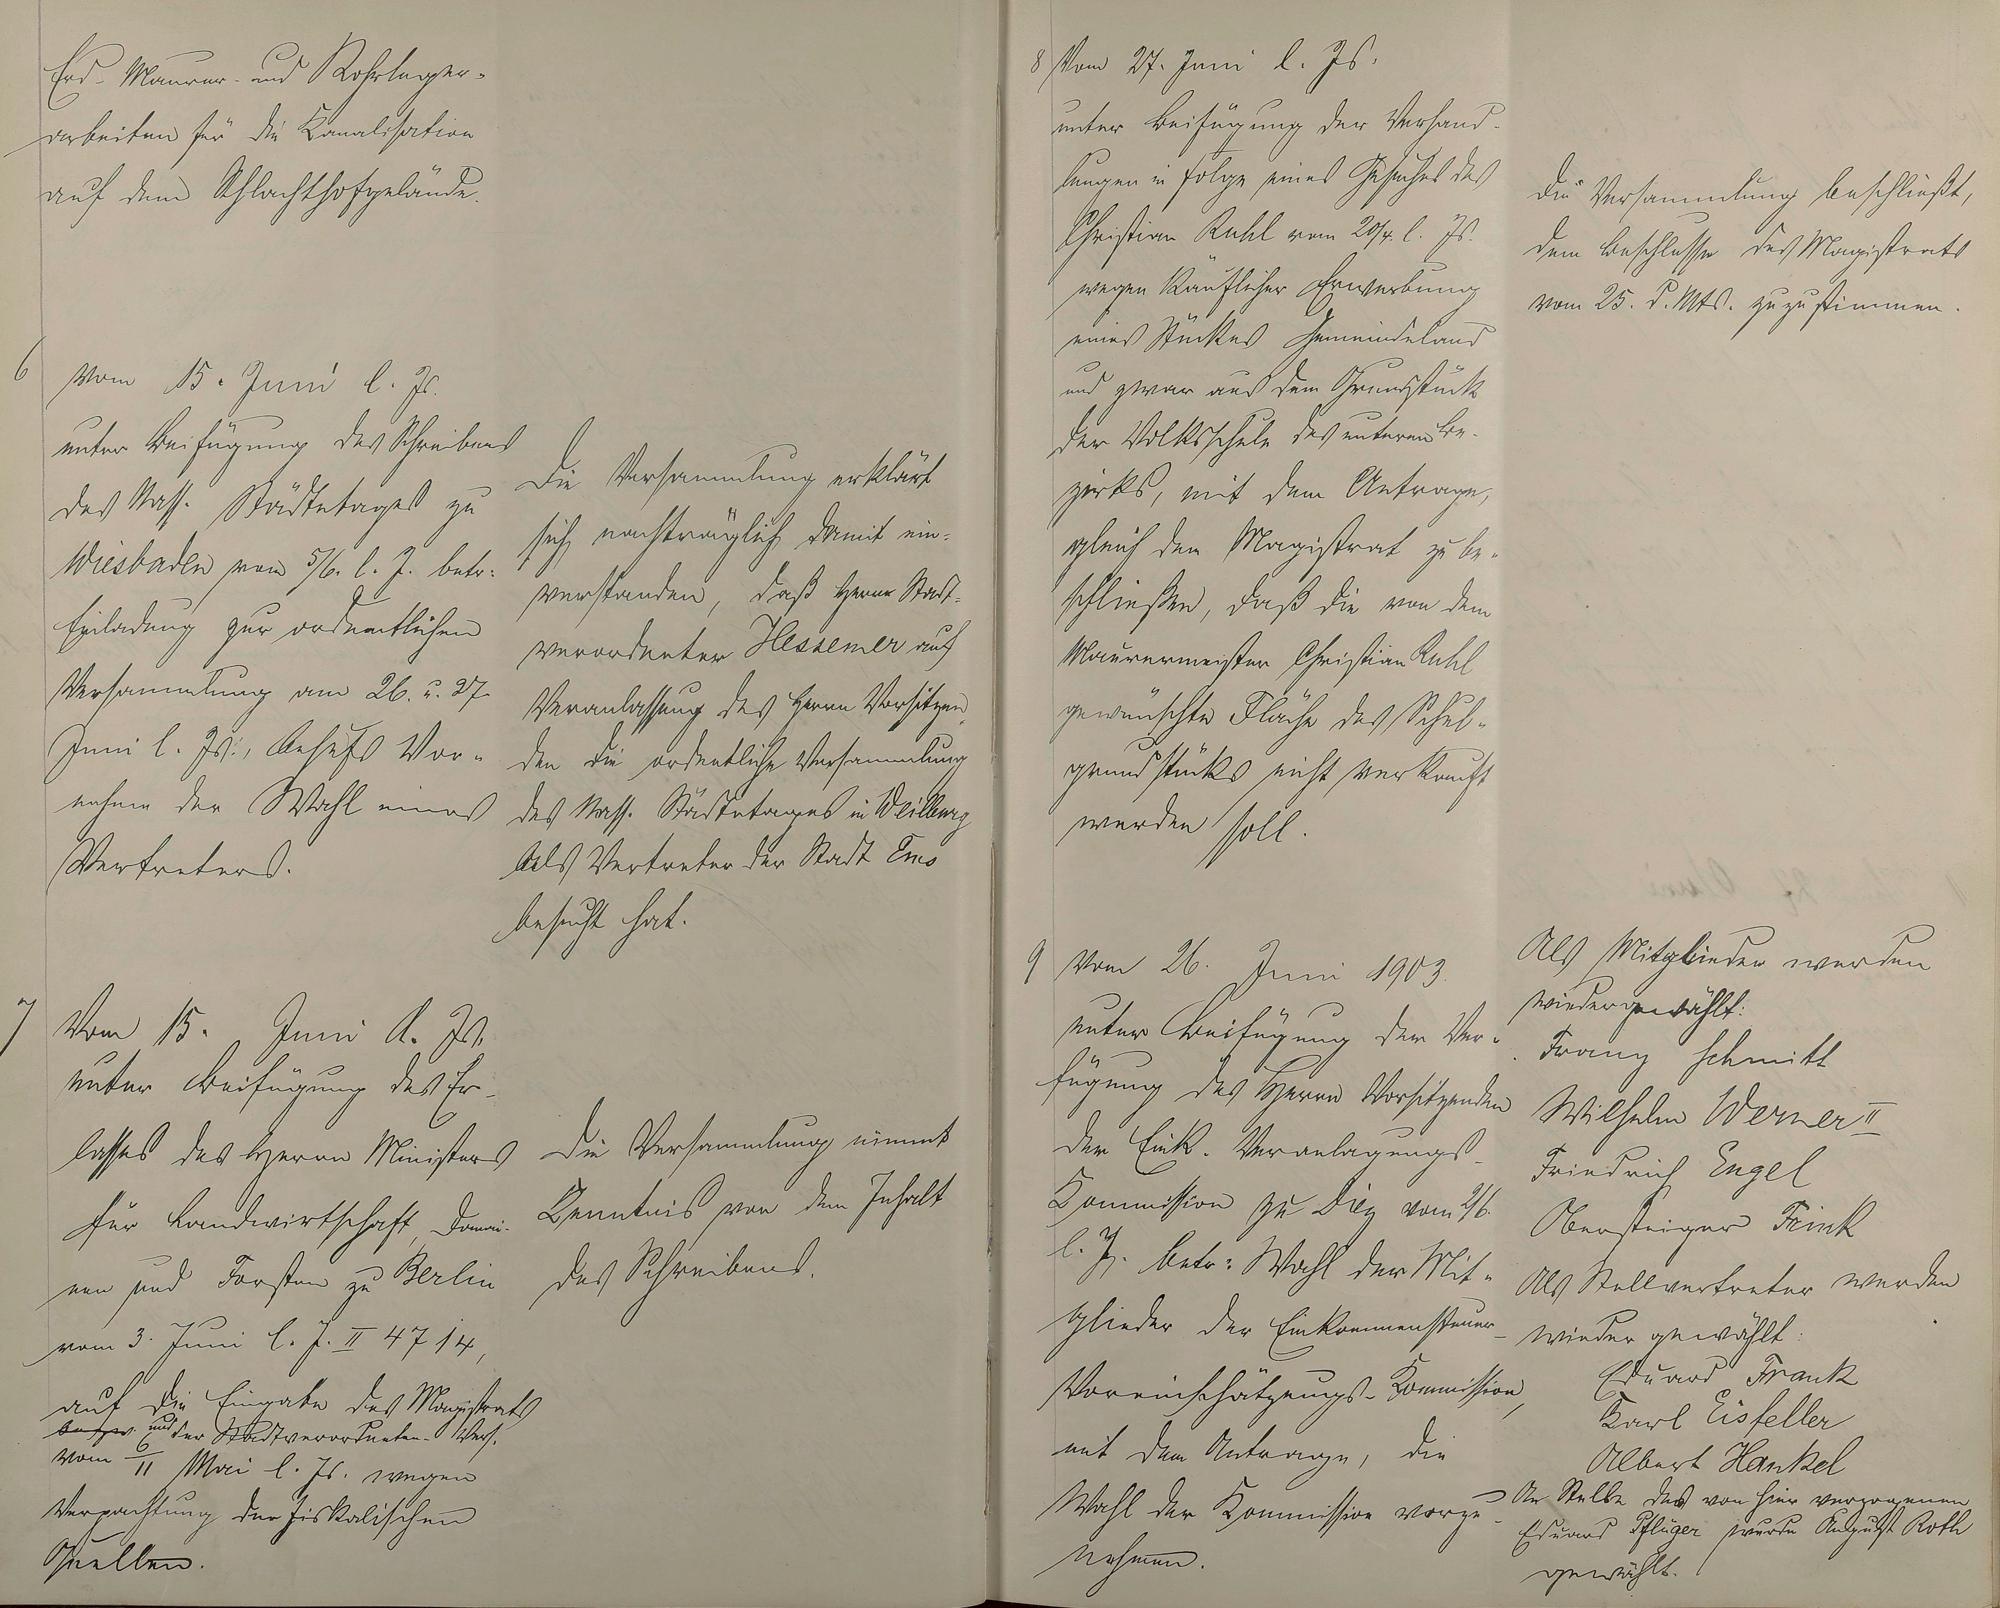 Erd- Maurer- und Rohrleger-
arbeiten für die Kanalisation
auf dem Schlachthofgelände.
6
vom 15. Juni l. Js.
unter Beifügung des Schreibens
des Nass. Städtetages zu
Wiesbaden vom 5/6. l. J. betr:
Einladung zur ordentlichen
Versammlung am 26. u. 27.
Juni l. Js., behufs Vor-
nahme der Wahl eines
Vertreters.
Die Versammlung erklärt
sich nachträglich damit ein-
verstanden, daß Herr Stadt-
verordneter Hessemer auf
Veranlassung des Herrn Vorsitzen-
den die ordentliche Versammlung
des Nass. Städtetages in Weilburg
als Vertreter der Stadt Ems
besucht hat.
7
Vom 15. Juni l. Js.
unter Beifügung des Er-
lasses des Herrn Ministers
für Landwirtschaft, Domai-
nen und Forsten zu Berlin
vom 3. Juni l. J. II 4714,
auf die Eingabe des Magistrats
bezw. und der Stadtverordneten-Vers.
vom 6/11 Mai l. Js. wegen
Verpachtung der fiskalischen
Quellen.
Die Versammlung nimmt
Kenntnis von dem Inhalt
des Schreibens.
8 Vom 27. Juni l. Js.
unter Beifügung der Verhand-
lungen in folge eines Gesuches des
Christian Ruhl vom 20/4. l. Js.
wegen käuflicher Erwerbung
eines Stückes Gemeindeland
und zwar aus dem Grundstück
der Volksschule des unteren Be-
zirks, mit dem Antrage,
gleich dem Magistrat zu be-
schließen, daß die von dem
Maurermeister Christian Ruhl
gewünschte Fläche des Schul-
grundstücks nicht verkauft
werden soll.
Die Versammlung beschließt,
dem Beschlusse des Magistrats
vom 25. d. Mts. zuzustimmen.
9 Vom 26. Juni 1903.
unter Beifügung der Ver-
fügung des Herrn Vorsitzenden
der Eink. Veranlagungs-
Kommission zu Diez vom 2/6.
l. J. betr: Wahl der Mit-
glieder der Einkommensteuer-
Voreinschätzungs-Kommission,
mit dem Antrage, die
Wahl der Kommission vorzu-
nehmen.
Als Mitglieder werden
wiedergewählt:
Franz Schmitt
Wilhelm Werner II
Friedrich Engel
Obersteiger Fink
Als Stellvertreter werden
wieder gewählt:
Eduard Frank
Karl Eisfeller
Albert Hankel
An Stelle des von hier verzogenen
Eduard Pflüger wurde August Roth
gewählt.